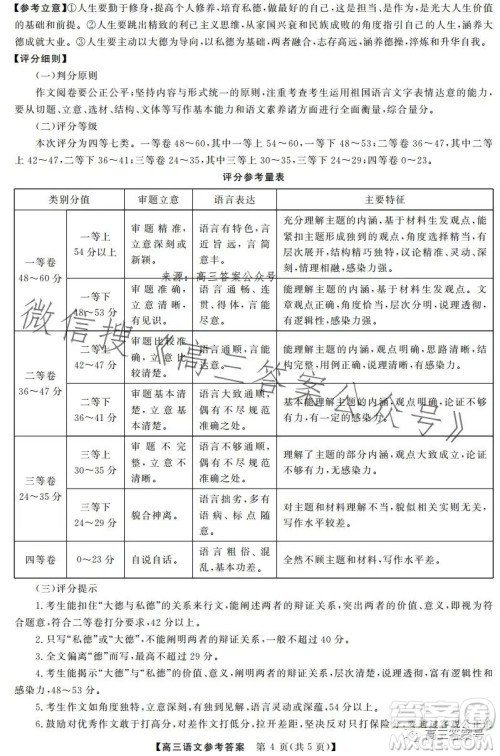 【参考立意】①人生要勤于修身，提高个人修养，培育私德，做最好的自己，这是担当、是作为，是光大人生价值
的基础和前提。②人生要跳出精致的利己主义思维，从家国兴衰和民族成败的角度指引自己的人生，涵养大
德成就大业。③人生要主动以大德为导向，以私德为基础，两者兼备，志存高远，涵养德操，淬炼和升华自我。
【评分细则】
(一)判分原则
作文阅卷要公正公平；坚持内容与形式统一的原则，注重考查考生运用祖国语言文字表情达意的能力，
要从切题、立意、选材、结构、文体等方面，结合写作基本能力和语文素养诸方面进行权衡，综合量分。
(二)评分等级
本次评分为四等七类。一等卷 48～60，其中一等上 54～60，一等下 48～53；二等卷 36～47，其中二等
上 42～47，二等下 36～41；三等卷 24～35，其中三等上 30～35，三等下 24～29；四等卷 0～23。
评分参考量表
类别分值 审题立意 语言表达 主要特征
一等卷
48～60 分
一等上
54 分以上
审题精准，
立意深刻或
新颖。
语言有特色，言
近旨远，言简
意丰。
充分理解主题的内涵，基于材料生发观点，能
紧扣主题形成独到的观点，角度富有新意，层
次展开，结构精巧，议论精辟、灵动、
深刻，情理相融，感染力强。
一等下
48～53 分
审题准确，
立意清晰，
有见识。
语言通畅、连
贯、得体，富有
表现力。
能理解主题的内涵，基于材料生发观点。文
章观点正确，角度恰当，
有逻辑性、感染力强。
二等卷
36～47 分
二等上
42～47 分
审题比较准
确，立意比
较清楚。
语言通顺，言能
达意。
能理解主题的内涵，观点明确，思路清晰，结
构完整，用例正确，说理明晰，有感染力。
二等下
36～41 分
审题基本清
楚，立意基
本清楚。
语言大致通顺，
规范性存在不
准确之处。
基本能理解主题的内涵，观点大体明确，有论
有据，有一定的感染力。
三等卷
24～35 分
三等上
30～35 分
审题不完
整，立意不
清晰。
语言不够通顺，
有较多的不规
范、不准确之处。
理解了主题的部分内涵，观点大致成立，论证
不够有力，感染力不强。
三等下
24～29 分
貌合神离。
语言拉杂，不够
规范准确。
对主题和材料理解不一致，观点不明确，写作
水平较差。
四等卷 0～23 分 自说自话。
语言粗俗、混
乱，表达力差。
不能理解主题和材料，写作能力极差。
(三)评分提示
1.考生能扣住“大德与私德”的关系来行文，能阐述两者的辩证关系，突出两者的价值、意义，即为符
合作文题意，符合二等卷卷标准，42 分以上。
2.只写“私德”或“大德”，不能阐明两者的辩证关系，一般不超过 40 分。
3.全文偏离“德”而写，最高不超过 29 分。
4.考生能揭示“大德与私德”的价值、意义，阐明两者的辩证关系，层次清楚，结构完整，论证有力，富有
感染力，48～53 分。
5.考生作文如角度独特、立意高远、思想深刻、语言老到、感染力强，可判 54 分以上。
高三语文参考答案 第 4 页(共 5 页)
来源：高三答案公众号
微信搜《高三答案公众号》